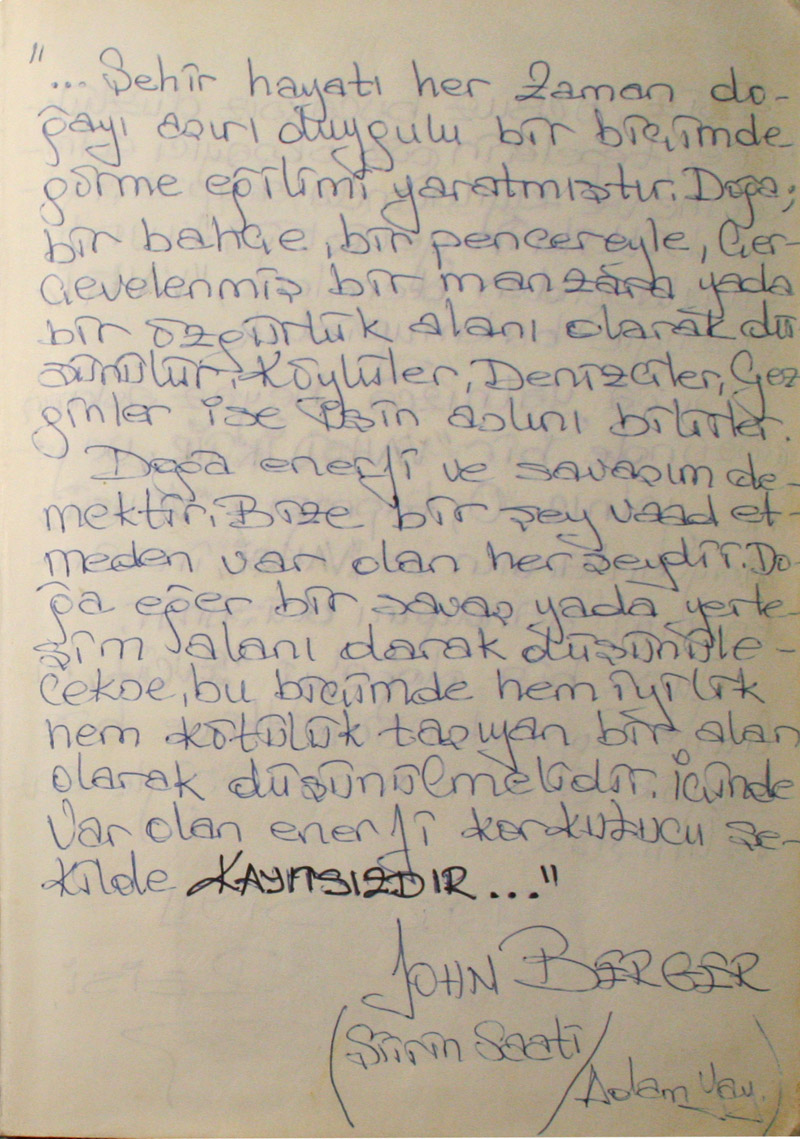 "... Şehir hayatı her zaman do-
ğayı aşırı duygulu bir biçimde
görme eğilimi yaratmıştır. Doğa;
bir bahçe, bir pencereyle, Çer-
çevelenmiş bir manzara yada
bir özgürlük alanı olarak dü
şünülür. Köylüler, Denizciler, Gez
ginler ise işin aslını bilirler.
Doğa enerji ve savaşım de-
mektir. Bize bir şey vaad et-
meden var olan herşeydir. Do-
ğa eğer bir savaş yada yerle-
şim alanı olarak düşünüle-
cekse, bu biçimde hem iyilik
hem kötülük taşıyan bir alan
olarak düşünülmelidir. İçinde
Var olan enerji korkutucu şe-
kilde KAYITSIZDIR..."
JOHN BERGER
(Şiirin Saati /
Adam Yay.)